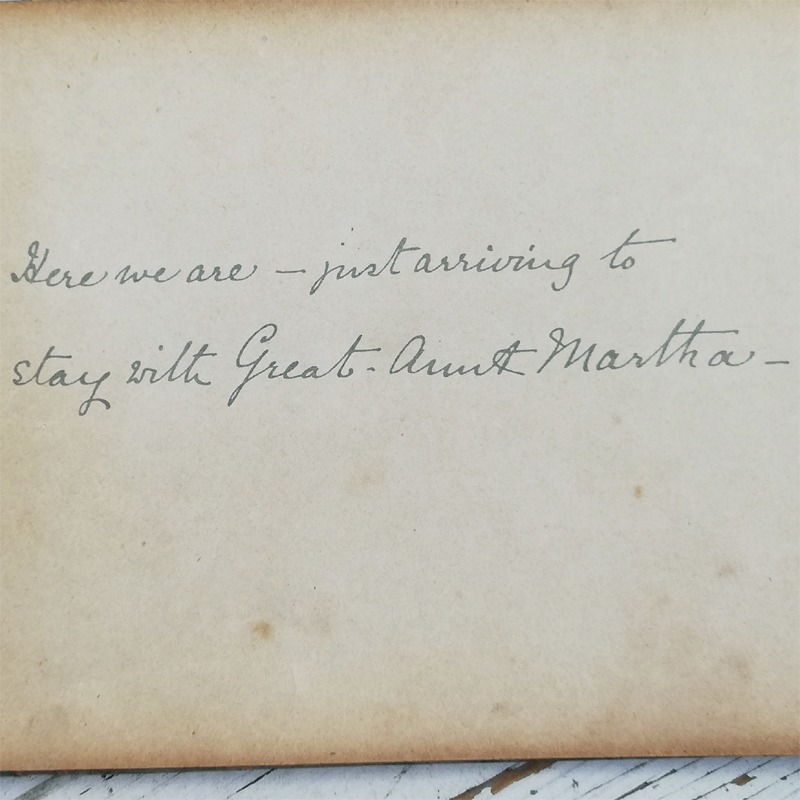 Here we are – just arriving to
stay with Great-Aunt Martha –